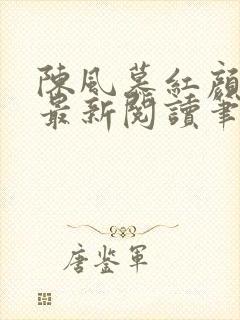 陳風慕紅顏
最新閱讀筆
唐鉴軍